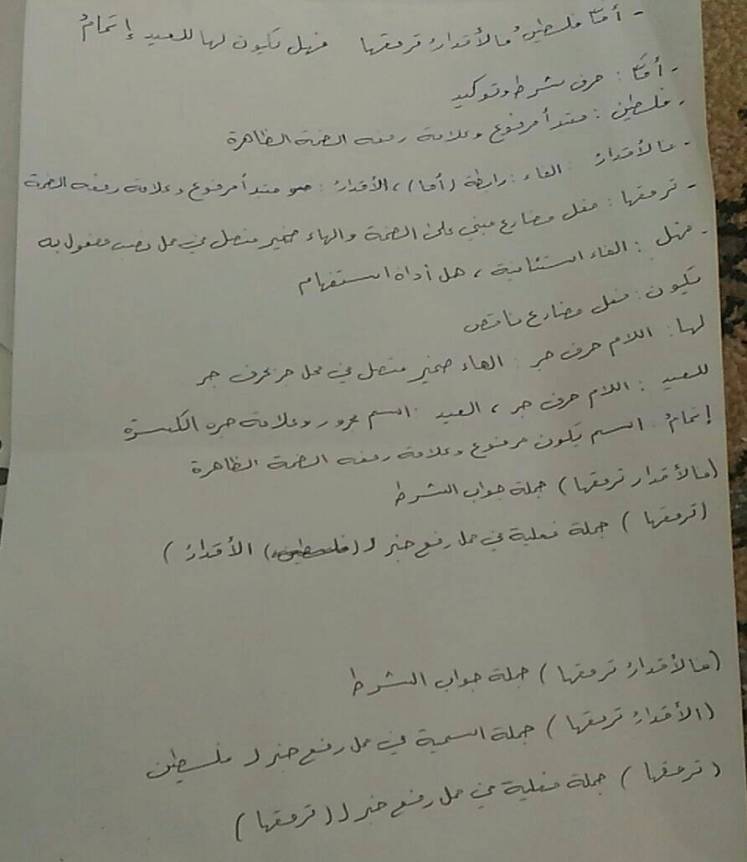 - أمّا فلسطينُ فالأقدارُ ترمقها فهل تكون لها للعيد إتمامُ
- أمّا : حرف شرط وتوكيد
- فلسطين : مبتدأ مرفوع وعلامة رفعه الضمة الظاهرة
- فالأقدارُ : الفاء : رابطة (أما) ، الأقدارُ : مبتدأ مرفوع وعلامة رفعه الضمة
- ترمقها : فعل مضارع مبني على الضمة والهاء ضمير متصل في محل نصب مفعول به
- فهل : الفاء استئنافية ، هل أداة استفهام
تكون : فعل مضارع ناقص
لها : اللام حرف جر : الهاء ضمير متصل في محل جر بحرف جر
للعيد : اللام حرف جر ، العيد : اسم مجرور وعلامة جره الكسرة
إتمامُ : اسم تكون مرفوع وعلامة رفعه الضمة الظاهرة
(فالأقدار ترمقها) جملة جواب الشرط
(ترمقها) جملة فعلية في محل رفع خبر لـ (فلسطين) الأقدارُ )
(فالأقدارُ ترمقها) جملة جواب الشرط
(الأقدارُ ترمقها) جملة اسمية في محل رفع خبر لـ فلسطين
(ترمقها) جملة فعلية في محل رفع خبر لـ (ترمقها)